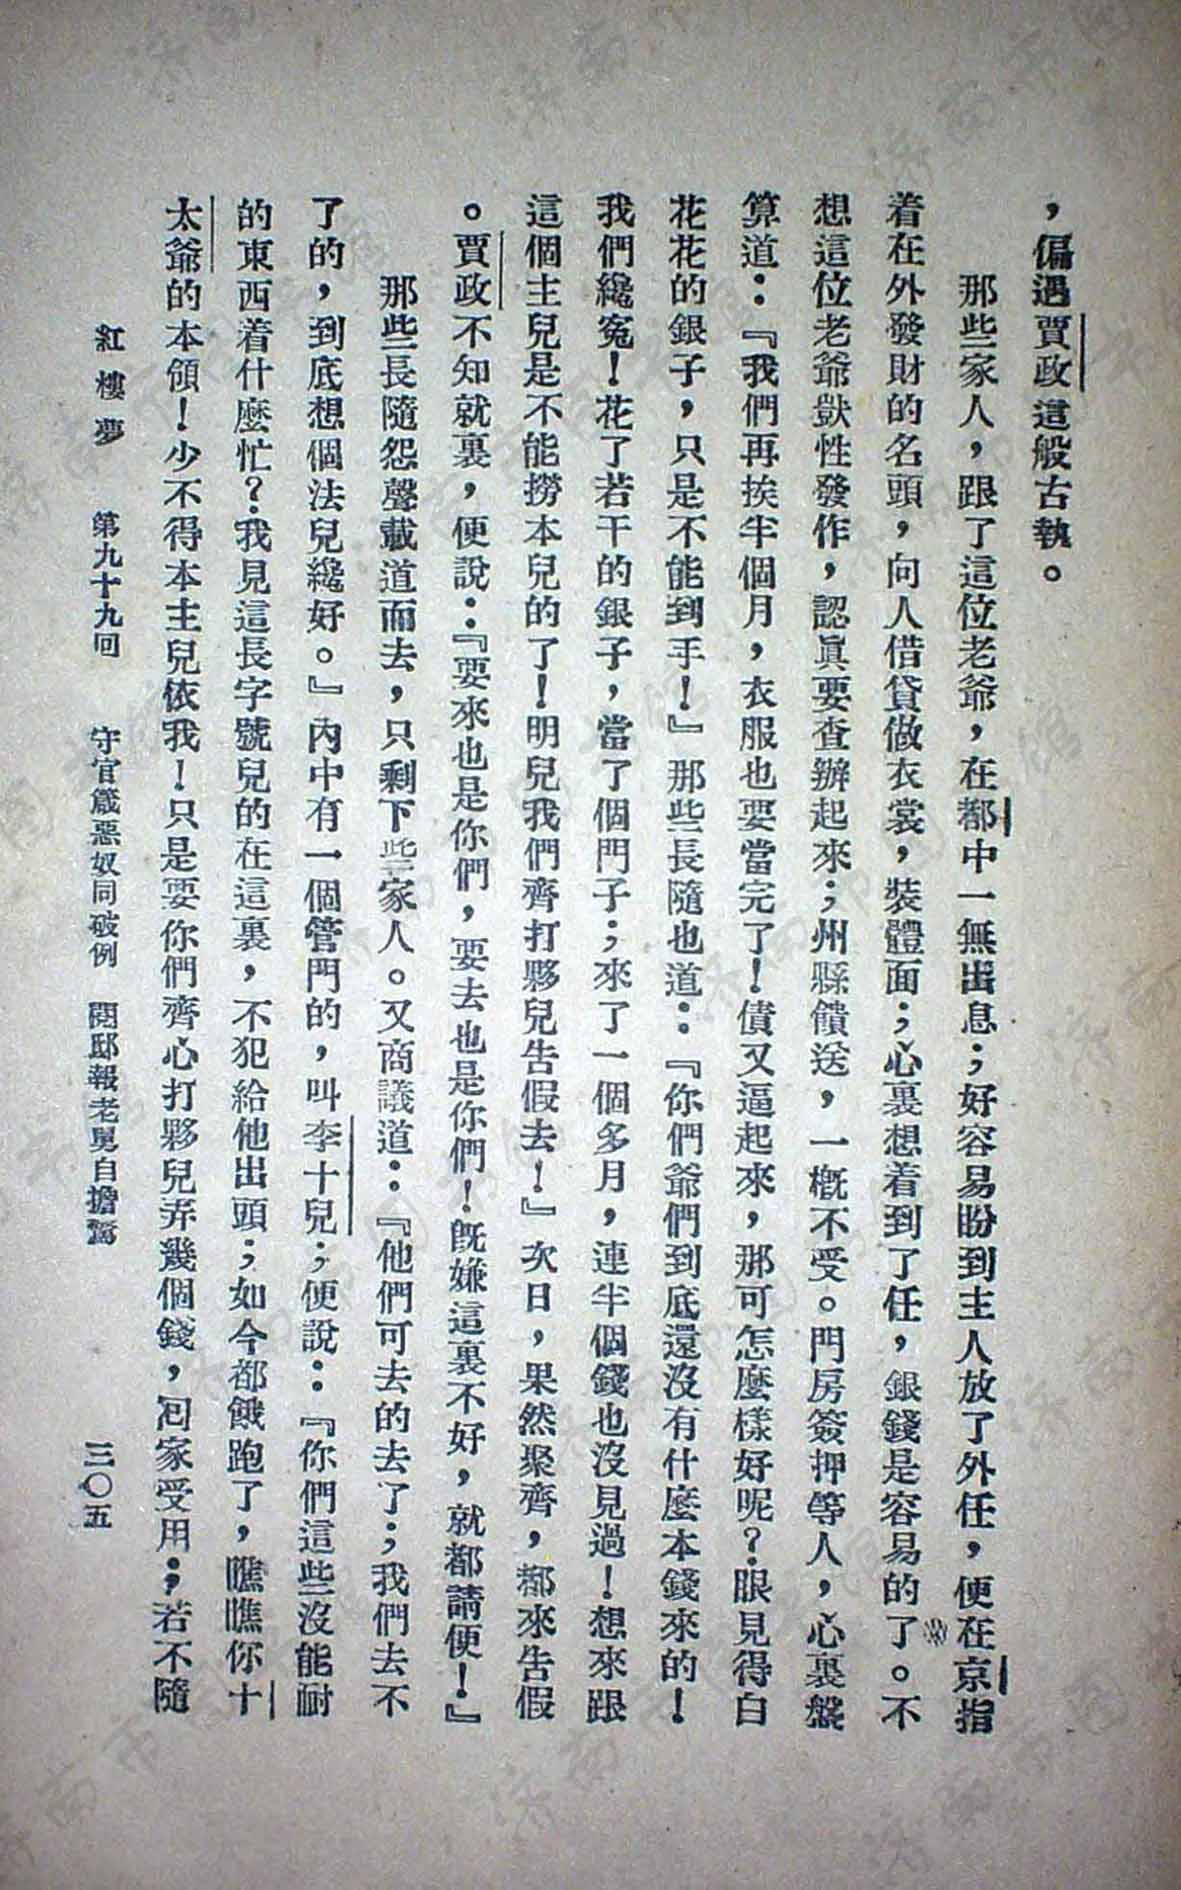 ，偏遇賈政這般古執。
那些家人，跟了這位老爺，在都中一無出息；好容易盼到主人放了外任，便在京指
着在外發財的名頭，向人借貸做衣裳，裝體面；心裏想着到了任，銀錢是容易的了。不
想這位老爺獃性發作，認眞要查辦起來；州縣饋送，一槪不受。門房簽押等人，心裏盤
算道：『我們再挨半個月，衣服也要當完了！債又逼起來，那可怎麼樣好呢？眼見得白
花花的銀子，只是不能到手！』那些長隨也道：『你們爺們到底還沒有什麼本錢來的！
我們纔寃！花了若干的銀子，當了個門子；來了一個多月，連半個錢也沒見過！想來跟
這個主兒是不能撈本兒的了！明兒我們齊打夥兒告假去！』次日，果然聚齊，都來告假
。賈政不知就裏，便說：『要來也是你們，要去也是你們！旣嫌這裏不好，就都請便！』
那些長隨怨聲載道而去，只剩下些家人。又商議道：『他們可去的去了；我們去不
了的，到底想個法兒纔好。』內中有一個管門的，叫李十兒；便說：『你們這些沒能耐
的東西着什麼忙？我見這長字號兒的在這裏，不犯給他出頭；如今都餓跑了，瞧瞧你十
太爺的本領！少不得本主兒依我！只是要你們齊心打夥兒弄幾個錢，囘家受用；若不隨
紅樓夢　第九十九囘　守官箴惡奴同破例　閱邸報老舅自擔驚　三〇五
济南市图书馆